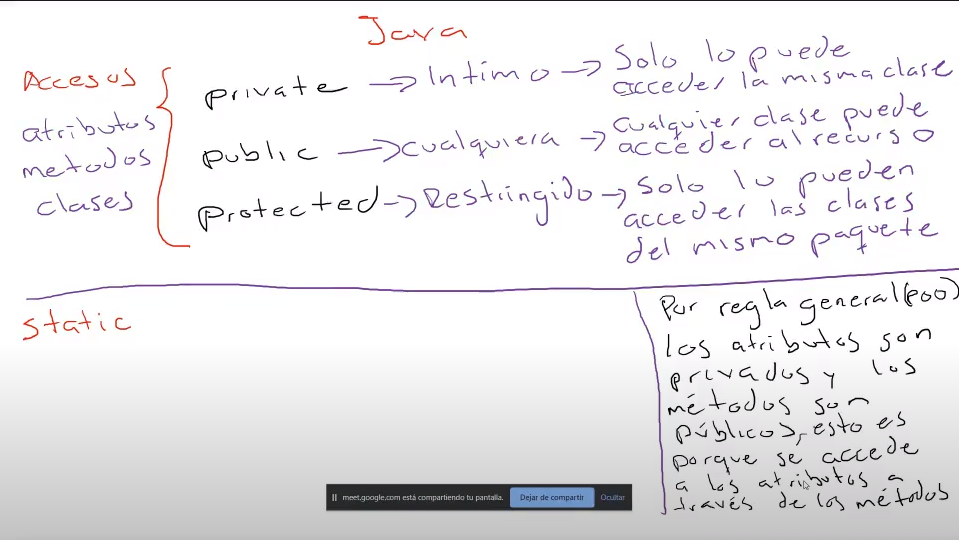 Java
Accesos
atributos
metodos
clases
private → Intimo → Solo lo puede
acceder la misma clase
public → cualquiera → cualquier clase puede
acceder al recurso
protected → Restringido → Solo lo pueden
acceder las clases
del mismo paquete
static
Por regla general (poo)
los atributos son
privados y los
métodos son
públicos, esto es
porque se accede
a los atributos a
través de los métodos
meet.google.com está compartiendo tu pantalla. Dejar de compartir Ocultar